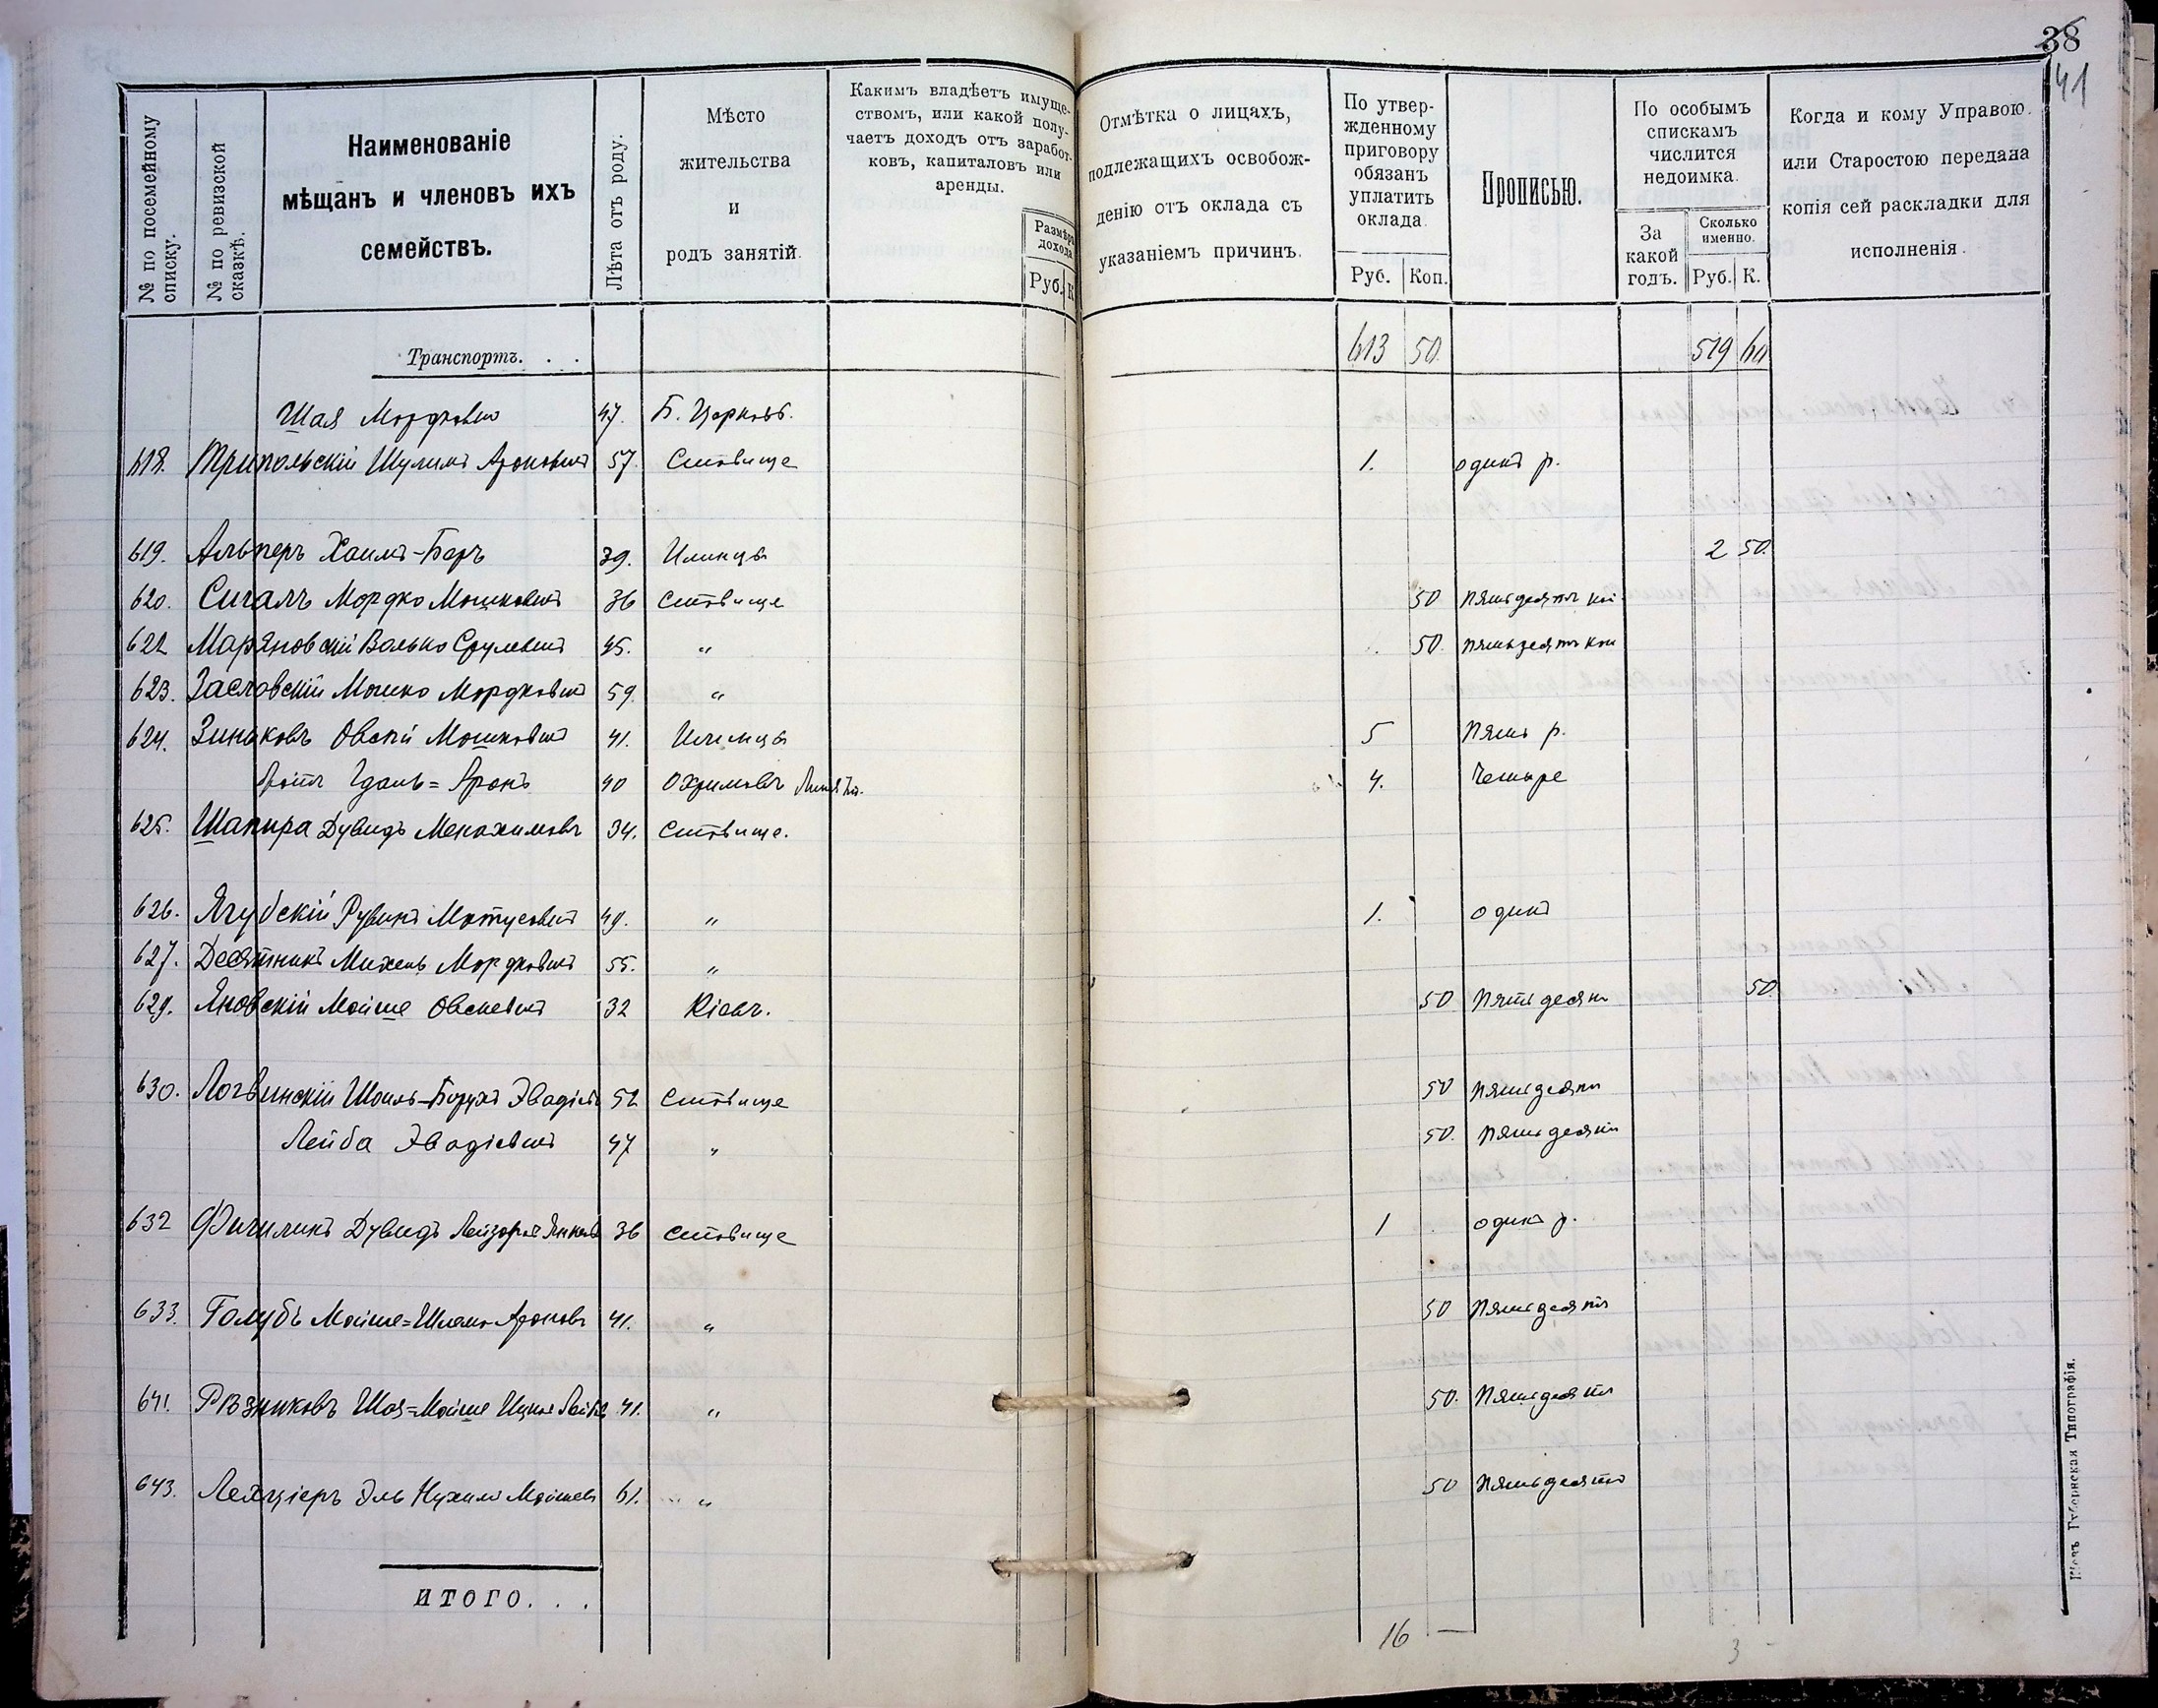 38
41
№ по посемейному списку.
№ по ревизской сказкѣ.
Наименованіе
мѣщанъ и членовъ ихъ
семействъ.
Лѣта отъ роду.
Мѣсто
жительства
и
родъ занятій.
Какимъ владѣетъ имуще-
ствомъ, или какой полу-
чаетъ доходъ отъ заработ-
ковъ, капиталовъ или
аренды.
Размѣръ
дохода
Руб. К
Отмѣтка о лицахъ,
подлежащихъ освобож-
денію отъ оклада съ
указаніемъ причинъ.
По утвер-
жденному
приговору
обязанъ
уплатить
оклада.
Руб. Коп.
Прописью.
По особымъ
спискамъ
числится
недоимка.
За
какой
годъ.
Сколько
именно.
Руб. К.
Когда и кому Управою
или Старостою передана
копія сей раскладки для
исполненія.
Транспортъ. . . 613 50. 519 60
Шая Мордковичъ 47. Б. Церковь.
618. Трипольскій Шулимъ Ароновичъ 57. Ставище 1. одинъ р.
619. Альперъ Хаимъ-Беръ 39. Илинцы 2 50.
620. Сигалъ Мордко Мошковичъ 36 Ставище 50 пятьдесятъ коп.
622 Маряновскій Волько Срулевичъ 45. " 50. пятьдесятъ коп
623. Заславскій Мошко Мордковичъ 59. "
624. Зиньковъ Овсей Мошковичъ 41. Илинцы 5 Пять р.
братъ Гдаль=Аронъ 40 Охримовъ 4. Четыре
625. Шапира Дувидъ Менахимовъ 34. Ставище.
626. Ягубскій Рувинъ Мотусовичъ 49. " 1. одинъ
627. Десятникъ Михель Мордковичъ 55. "
629. Яновскій Мойше Овсеевичъ 32 Кіевъ. 50 Пятьдесят 50.
630. Логвинскій Шоиль-Борухъ Эвадіевъ 52 Ставище 50 Пятьдесят
Лейба Эвадіевичъ 47 " 50. Пятьдесят
632 Фичилинъ Дувидъ Лейзоровъ 36 Ставище 1 одинъ р.
633. Голубъ Мойше=Шлема Ароновъ 41. " 50 Пятьдесятъ
641. Рѣзниковъ Шая=Мойше Ицковъ 41. " 50. Пятьдесятъ
643. Лейзіеръ Эль Нухимъ Мойшев 61. " 50 Пятьдесятъ
ИТОГО. . .
16 —
3 -
Кіевъ Губернская Типографія.